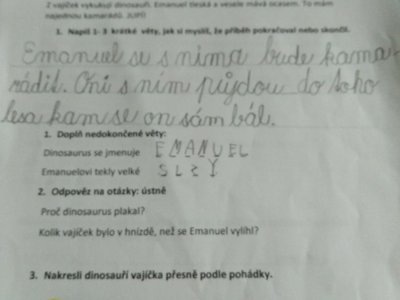 Z vajíček vykukují dinosauři. Emanuel tleská a vesele mává ocasem. To mám
najednou kamarádů. JUPÍ!
1. Napiš 1- 3 krátké věty, jak si myslíš, že příběh pokračoval nebo skončil.
Emanuel se s nima bude kama-
rádit. Oni s ním půjdou do toho
lesa kam se on sám bál.
1. Doplň nedokončené věty:
Dinosaurus se jmenuje EMANUEL
Emanuelovi tekly velké SLZY
2. Odpověz na otázky: ústně
Proč dinosaurus plakal?
Kolik vajíček bylo v hnízdě, než se Emanuel vylíhl?
3. Nakresli dinosauří vajíčka přesně podle pohádky.